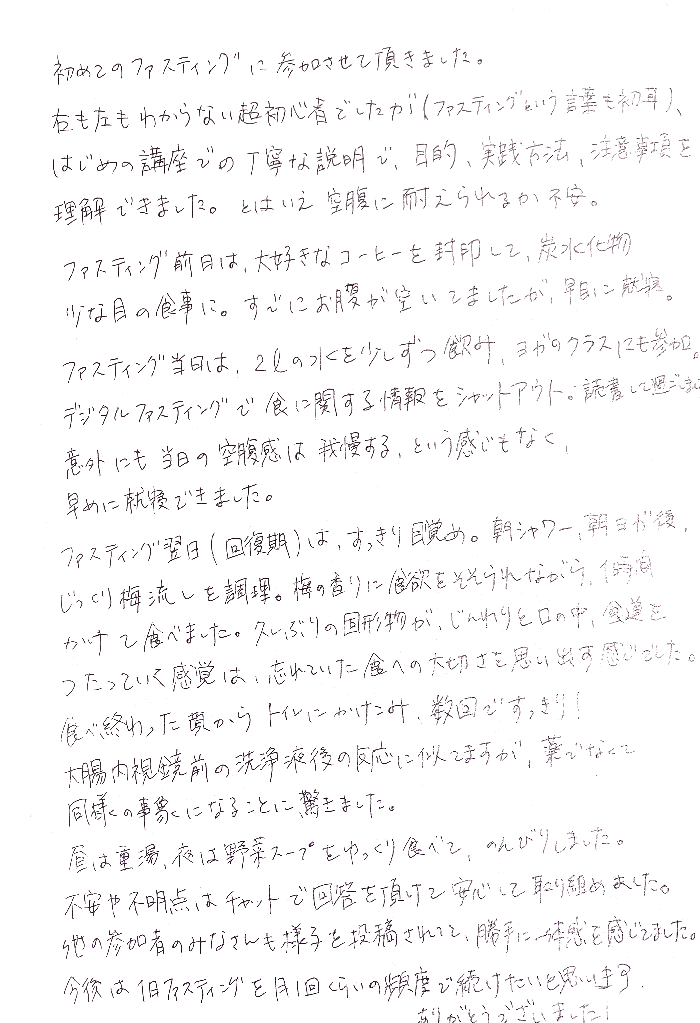 初めてのファスティングに参加させて頂きました。
右も左もわからない超初心者でしたが(ファスティングという言葉も初耳)、
はじめの講座での丁寧な説明で、目的、実践方法、注意事項を
理解できました。とはいえ空腹に耐えられるか不安。
ファスティング前日は、大好きなコーヒーを封印して、炭水化物
少な目の食事に。すでにお腹が空いてましたが、早目に就寝。
ファスティング当日は、2ℓの水を少しずつ飲み、ヨガのクラスにも参加。
デジタルファスティングで食に関する情報をシャットアウト。読書して過ごしまし
意外にも当日の空腹感は我慢する、という感じもなく、
早めに就寝できました。
ファスティング翌日(回復期)は、すっきり目覚め。朝シャワー、朝ヨガ後、
じっくり梅流しを調理。梅の香りに食欲をそそられながら、1時間
かけて食べました。久しぶりの固形物が、じんわりと口の中、食道を
つたっていく感覚は、忘れていた食への大切さを思い出す感じでした。
食べ終わった頃からトイレにかけこみ、数回ですっきり!
大腸内視鏡前の洗浄液後の反応に似てますが、薬でなくて
同様の事象になることに驚きました。
昼は重湯、夜は野菜スープをゆっくり食べて、のんびりしました。
不安や不明点はチャットで回答を頂けて安心して取り組めました。
他の参加者のみなさんも様子を投稿されてて、勝手に一体感を感じてました。
今後は1日ファスティングを月1回くらいの頻度で続けたいと思います。
ありがとうございました!